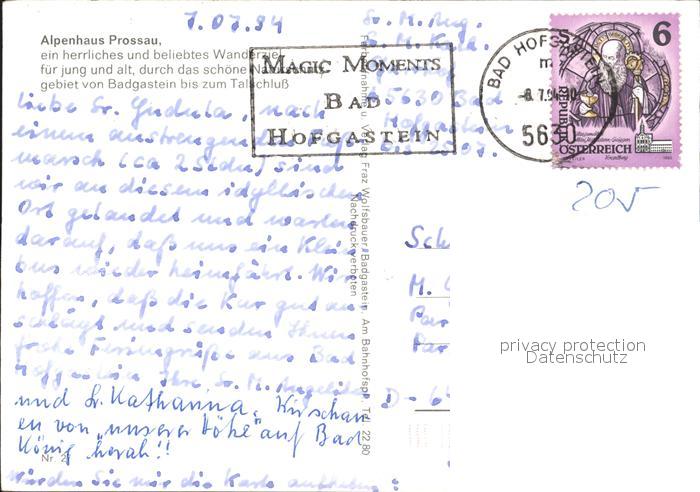 7.07.94
Alpenhaus Prossau,
ein herrliches und beliebtes Wanderziel
für jung und alt, durch das schöne
gebiet von Badgastein bis zum Talschluß
Liebe Sr. Gudula, nach
einem anstrengenden
marsch (ca 2 Stdn) sind
wir an diesem idyllischen
Ort gelandet und warten
darauf, daß uns ein Klein
bus wieder heimfährt. Wir
hoffen, daß die Kur gut an
schlägt und senden Ihnen
frohe Feriengrüße aus Bad
Hofgastein Ihre Sr. M. Angelika
und Sr. Katharina. Wir schau
en von "unserer Höhe" auf Bad
König herab!!
Nr. 2
würden Sie mir die Karte aufheben?
MAGIC MOMENTS
BAD
HOFGASTEIN
Sr. M. Aug.
Sr. M. Kath.
5630 Bad
Hofgastein
BAD HOFGASTEIN
-8.7.94
5630
6
REPUBLIK
ÖSTERREICH
20,-
Wolfsbauer, Badgastein, Am Bahnhofspl., Tel. 22 80
Nachdruck verboten
Sch
M.
D-6
privacy protection
Datenschutz